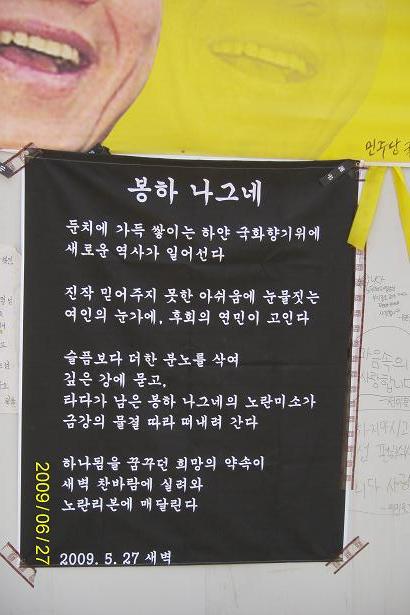 민주당
봉하 나그네
둔치에 가득 쌓이는 하얀 국화향기위에
새로운 역사가 일어선다
진작 믿어주지 못한 아쉬움에 눈물짓는
여인의 눈가에, 후회의 연민이 고인다
슬픔보다 더한 분노를 삭여
깊은 강에 묻고,
타다가 남은 봉하 나그네의 노란미소가
금강의 물결 따라 떠내려 간다
하나됨을 꿈꾸던 희망의 약속이
새벽 찬바람에 실려와
노란리본에 매달린다
2009. 5. 27 새벽
2009/06/27